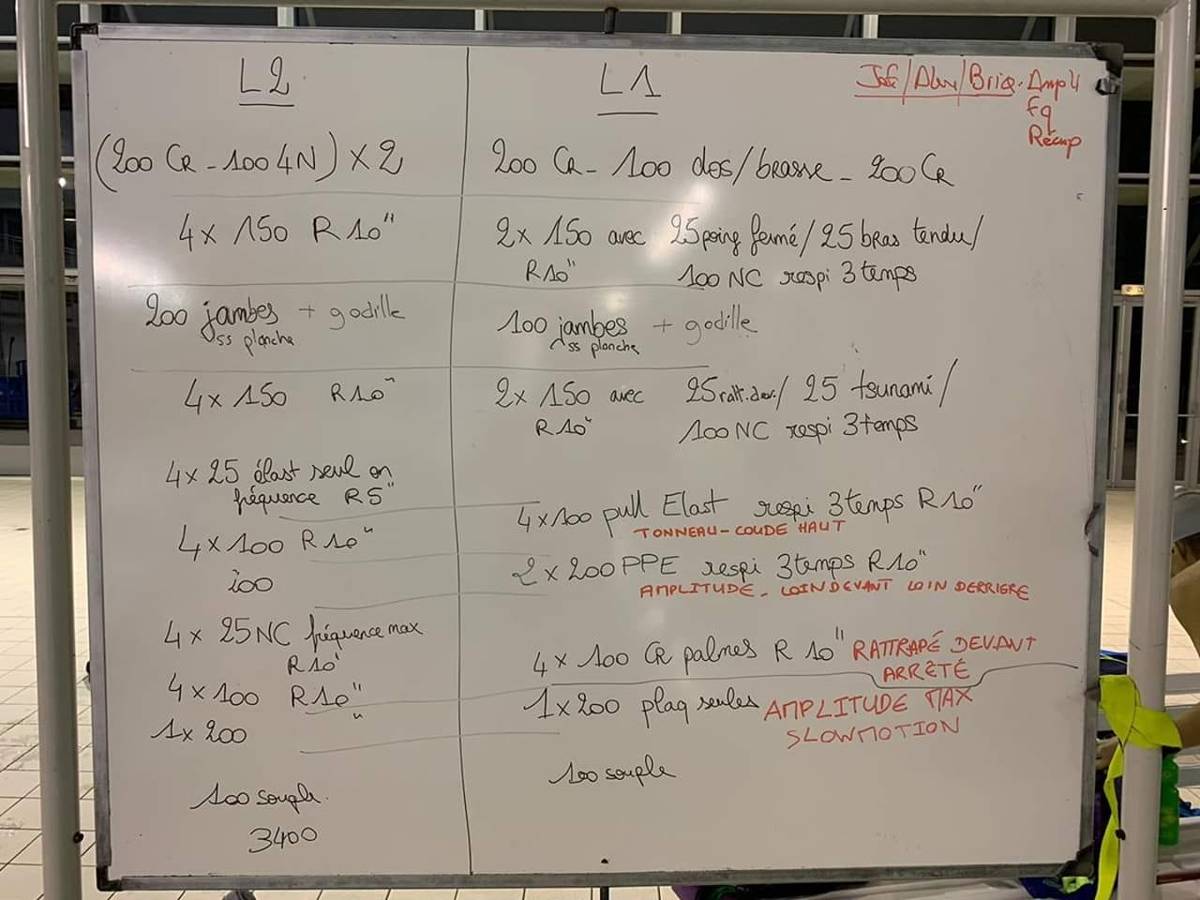 L2
(200 CR - 100 4N) x 2
4 x 150 R 10"
200 jambes + godille
ss planche
4 x 150 R 10"
4 x 25 élast seul en
fréquence R5"
4 x 100 R 10"
100
4 x 25 NC fréquence max
R10'
4 x 100 R10"
1 x 200 "
100 souple.
3400
L1
200 CR - 100 dos/brasse - 200 CR
2 x 150 avec 25 poing fermé / 25 bras tendu /
R10" 100 NC respi 3 temps
100 jambes + godille
ss planche
2 x 150 avec 25 ratt. dev. / 25 tsunami /
R10" 100 NC respi 3 temps
4 x 100 pull Elast respi 3 temps R 10"
TONNEAU - COUDE HAUT
2 x 200 PPE respi 3 temps R 10"
AMPLITUDE - LOIN DEVANT LOIN DERRIERE
4 x 100 CR palmes R 10" RATTRAPÉ DEVANT
ARRÊTÉ
1 x 200 plaq seules AMPLITUDE MAX
SLOWMOTION
100 souple
/ Briq. Ampli
Fq
Récup